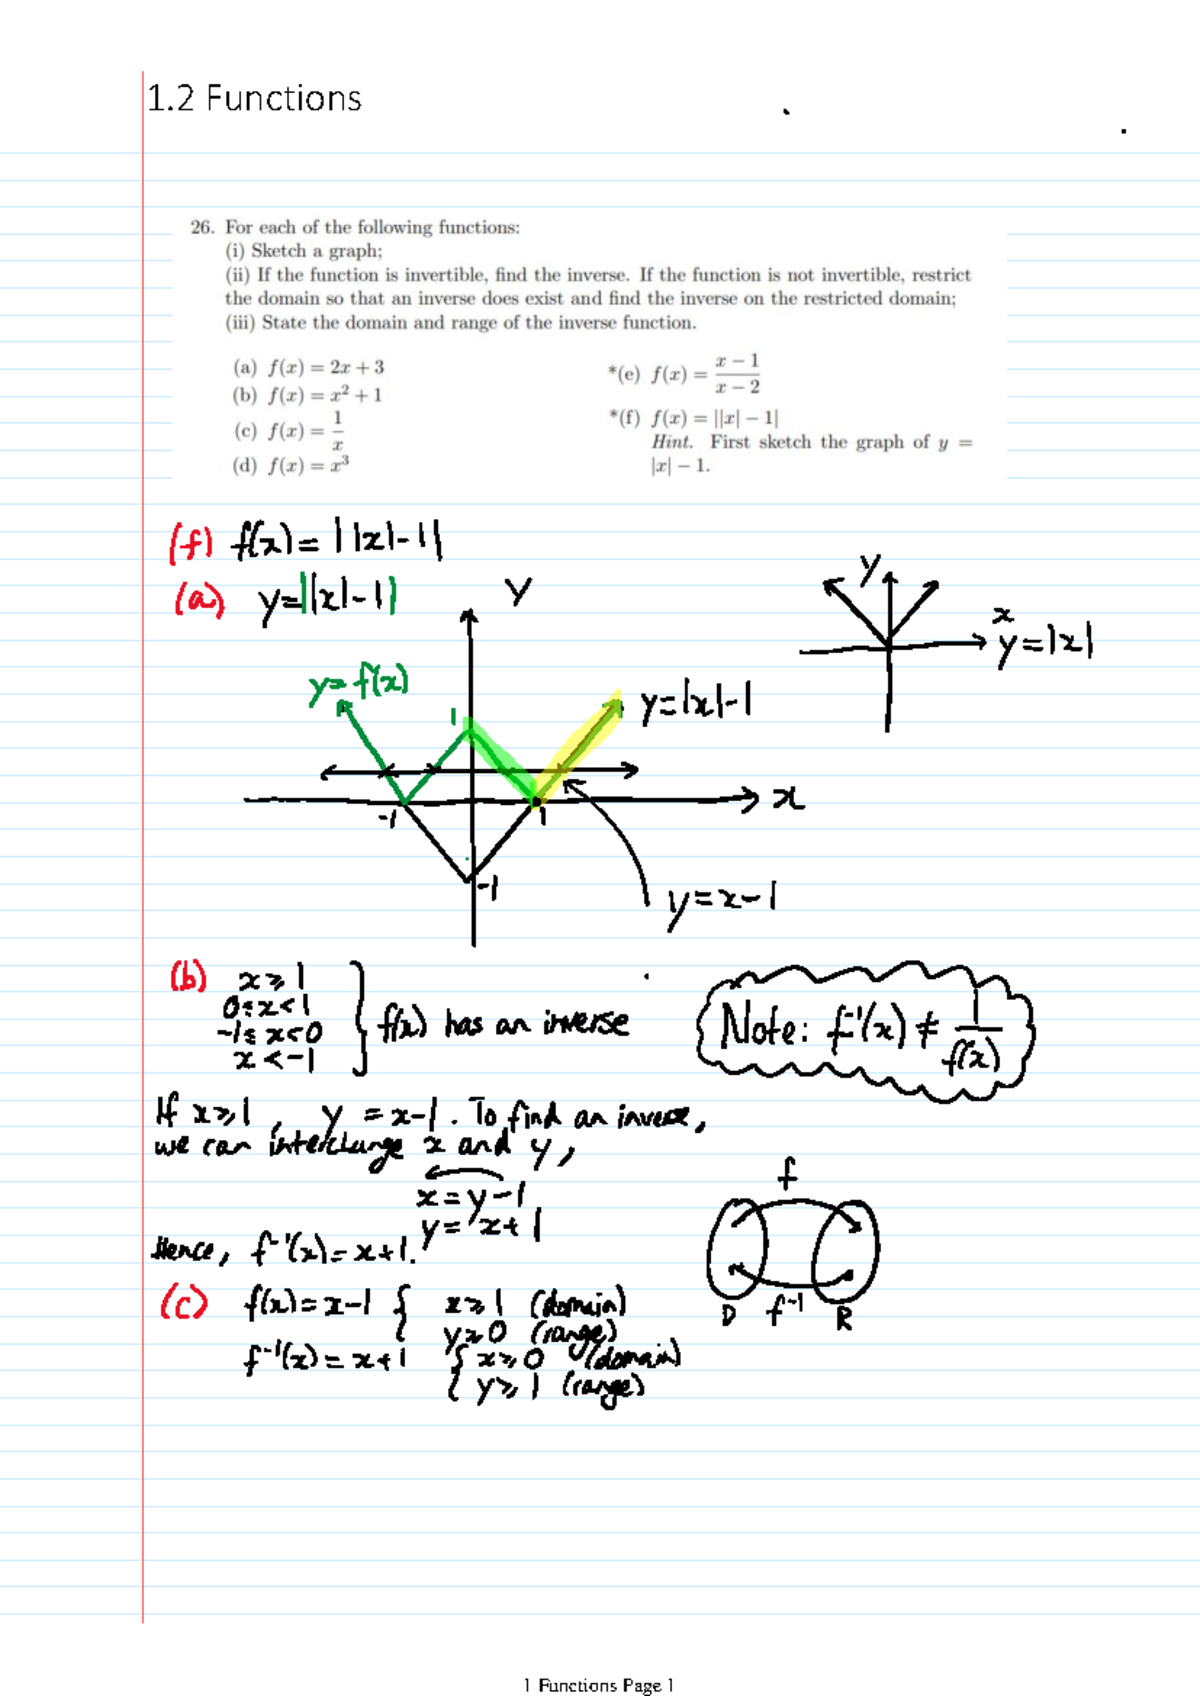 1.2 Functions
26. For each of the following functions:
(i) Sketch a graph;
(ii) If the function is invertible, find the inverse. If the function is not invertible, restrict
the domain so that an inverse does exist and find the inverse on the restricted domain;
(iii) State the domain and range of the inverse function.
(a) f(x) = 2x + 3
(b) f(x) = x² + 1
(c) f(x) = 1/x
(d) f(x) = x³
*(e) f(x) = (x − 1)/(x − 2)
*(f) f(x) = ||x| − 1|
Hint. First sketch the graph of y =
|x| − 1.
(f) f(x) = ||x|-1|
(a) y=||x|-1|
y
y
x
y=|x|
y=f(x)
1
y=|x|-1
x
-1
1
-1
y=x-1
(b) x≥1
0≤x<1
-1≤x<0
x<-1
f(x) has an inverse
Note: f⁻¹(x) ≠ 1/f(x)
If x≥1, y = x-1. To find an inverse,
we can interchange x and y,
x=y-1
y=x+1
Hence, f⁻¹(x)=x+1.
f
D f⁻¹ R
(c) f(x)=x-1 { x≥1 (domain)
y≥0 (range)
f⁻¹(x)=x+1 { x≥0 (domain)
{ y≥1 (range)
1 Functions Page 1